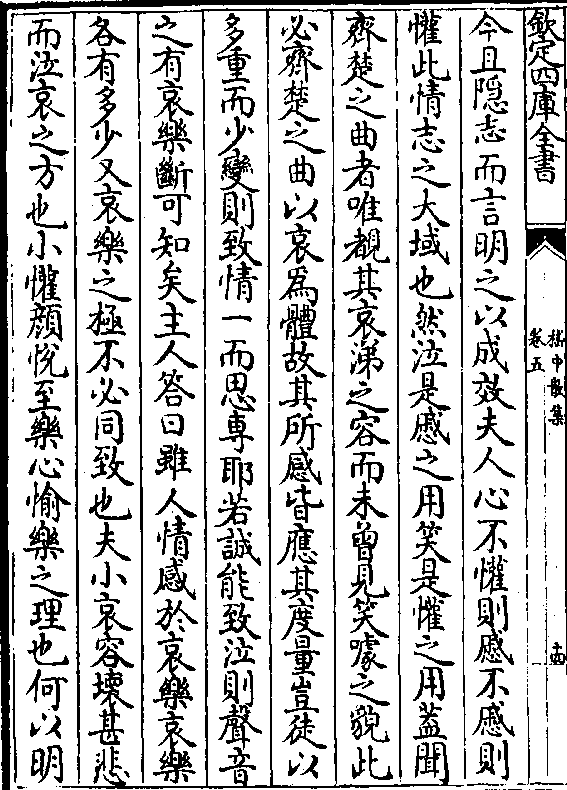 欽定四庫全書
嵇中散集
卷五
十四
今且隱志而言明之以成效夫人心不懽則慼不慼則
懽此情志之大域也然泣是慼之用笑是懽之用葢聞
齊楚之曲者唯覩其哀涕之容而未曾見笑噱之貌此
必齊楚之曲以哀為體故其所感皆應其度量豈徒以
多重而少變則致情一而思專耶若誠能致泣則聲音
之有哀樂斷可知矣主人答曰雖人情感於哀樂哀樂
各有多少又哀樂之極不必同致也夫小哀容壊甚悲
而泣哀之方也小懽顔悅至樂心愉樂之理也何以明